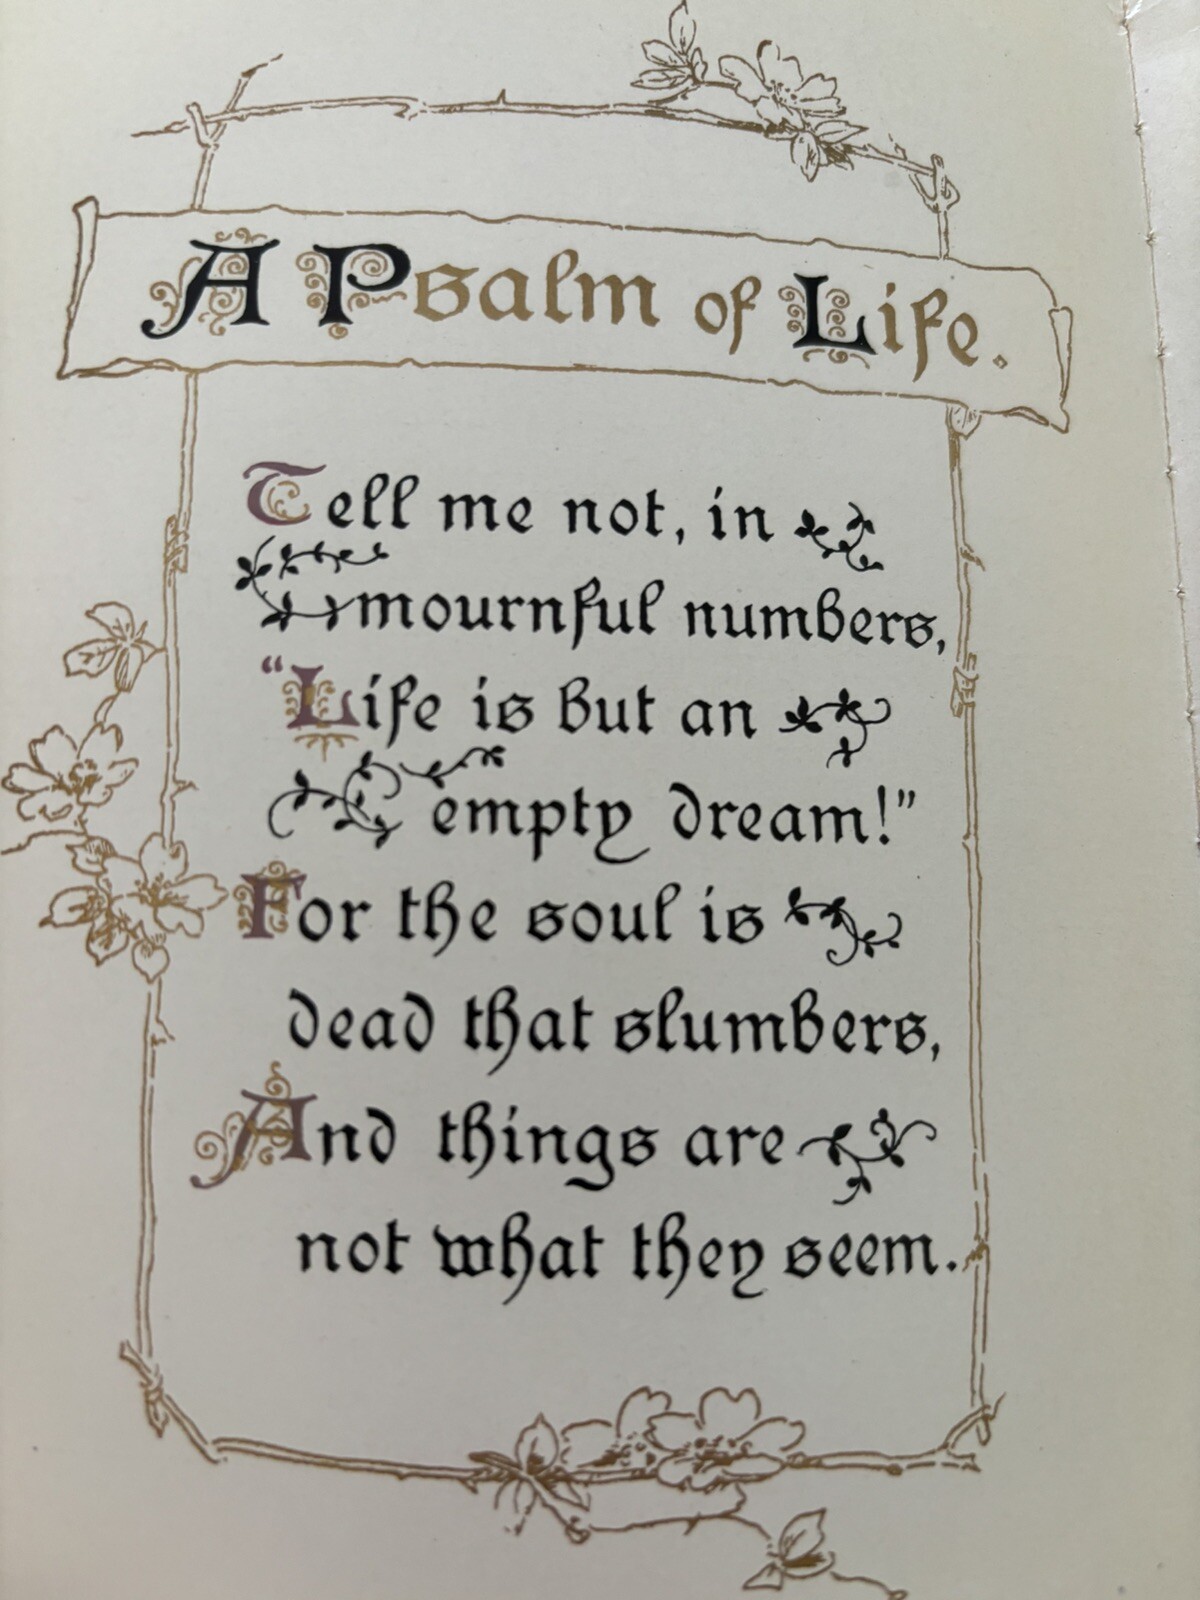 A Psalm of Life.
Tell me not, in
mournful numbers,
"Life is but an
empty dream!"
For the soul is
dead that slumbers,
And things are
not what they seem.